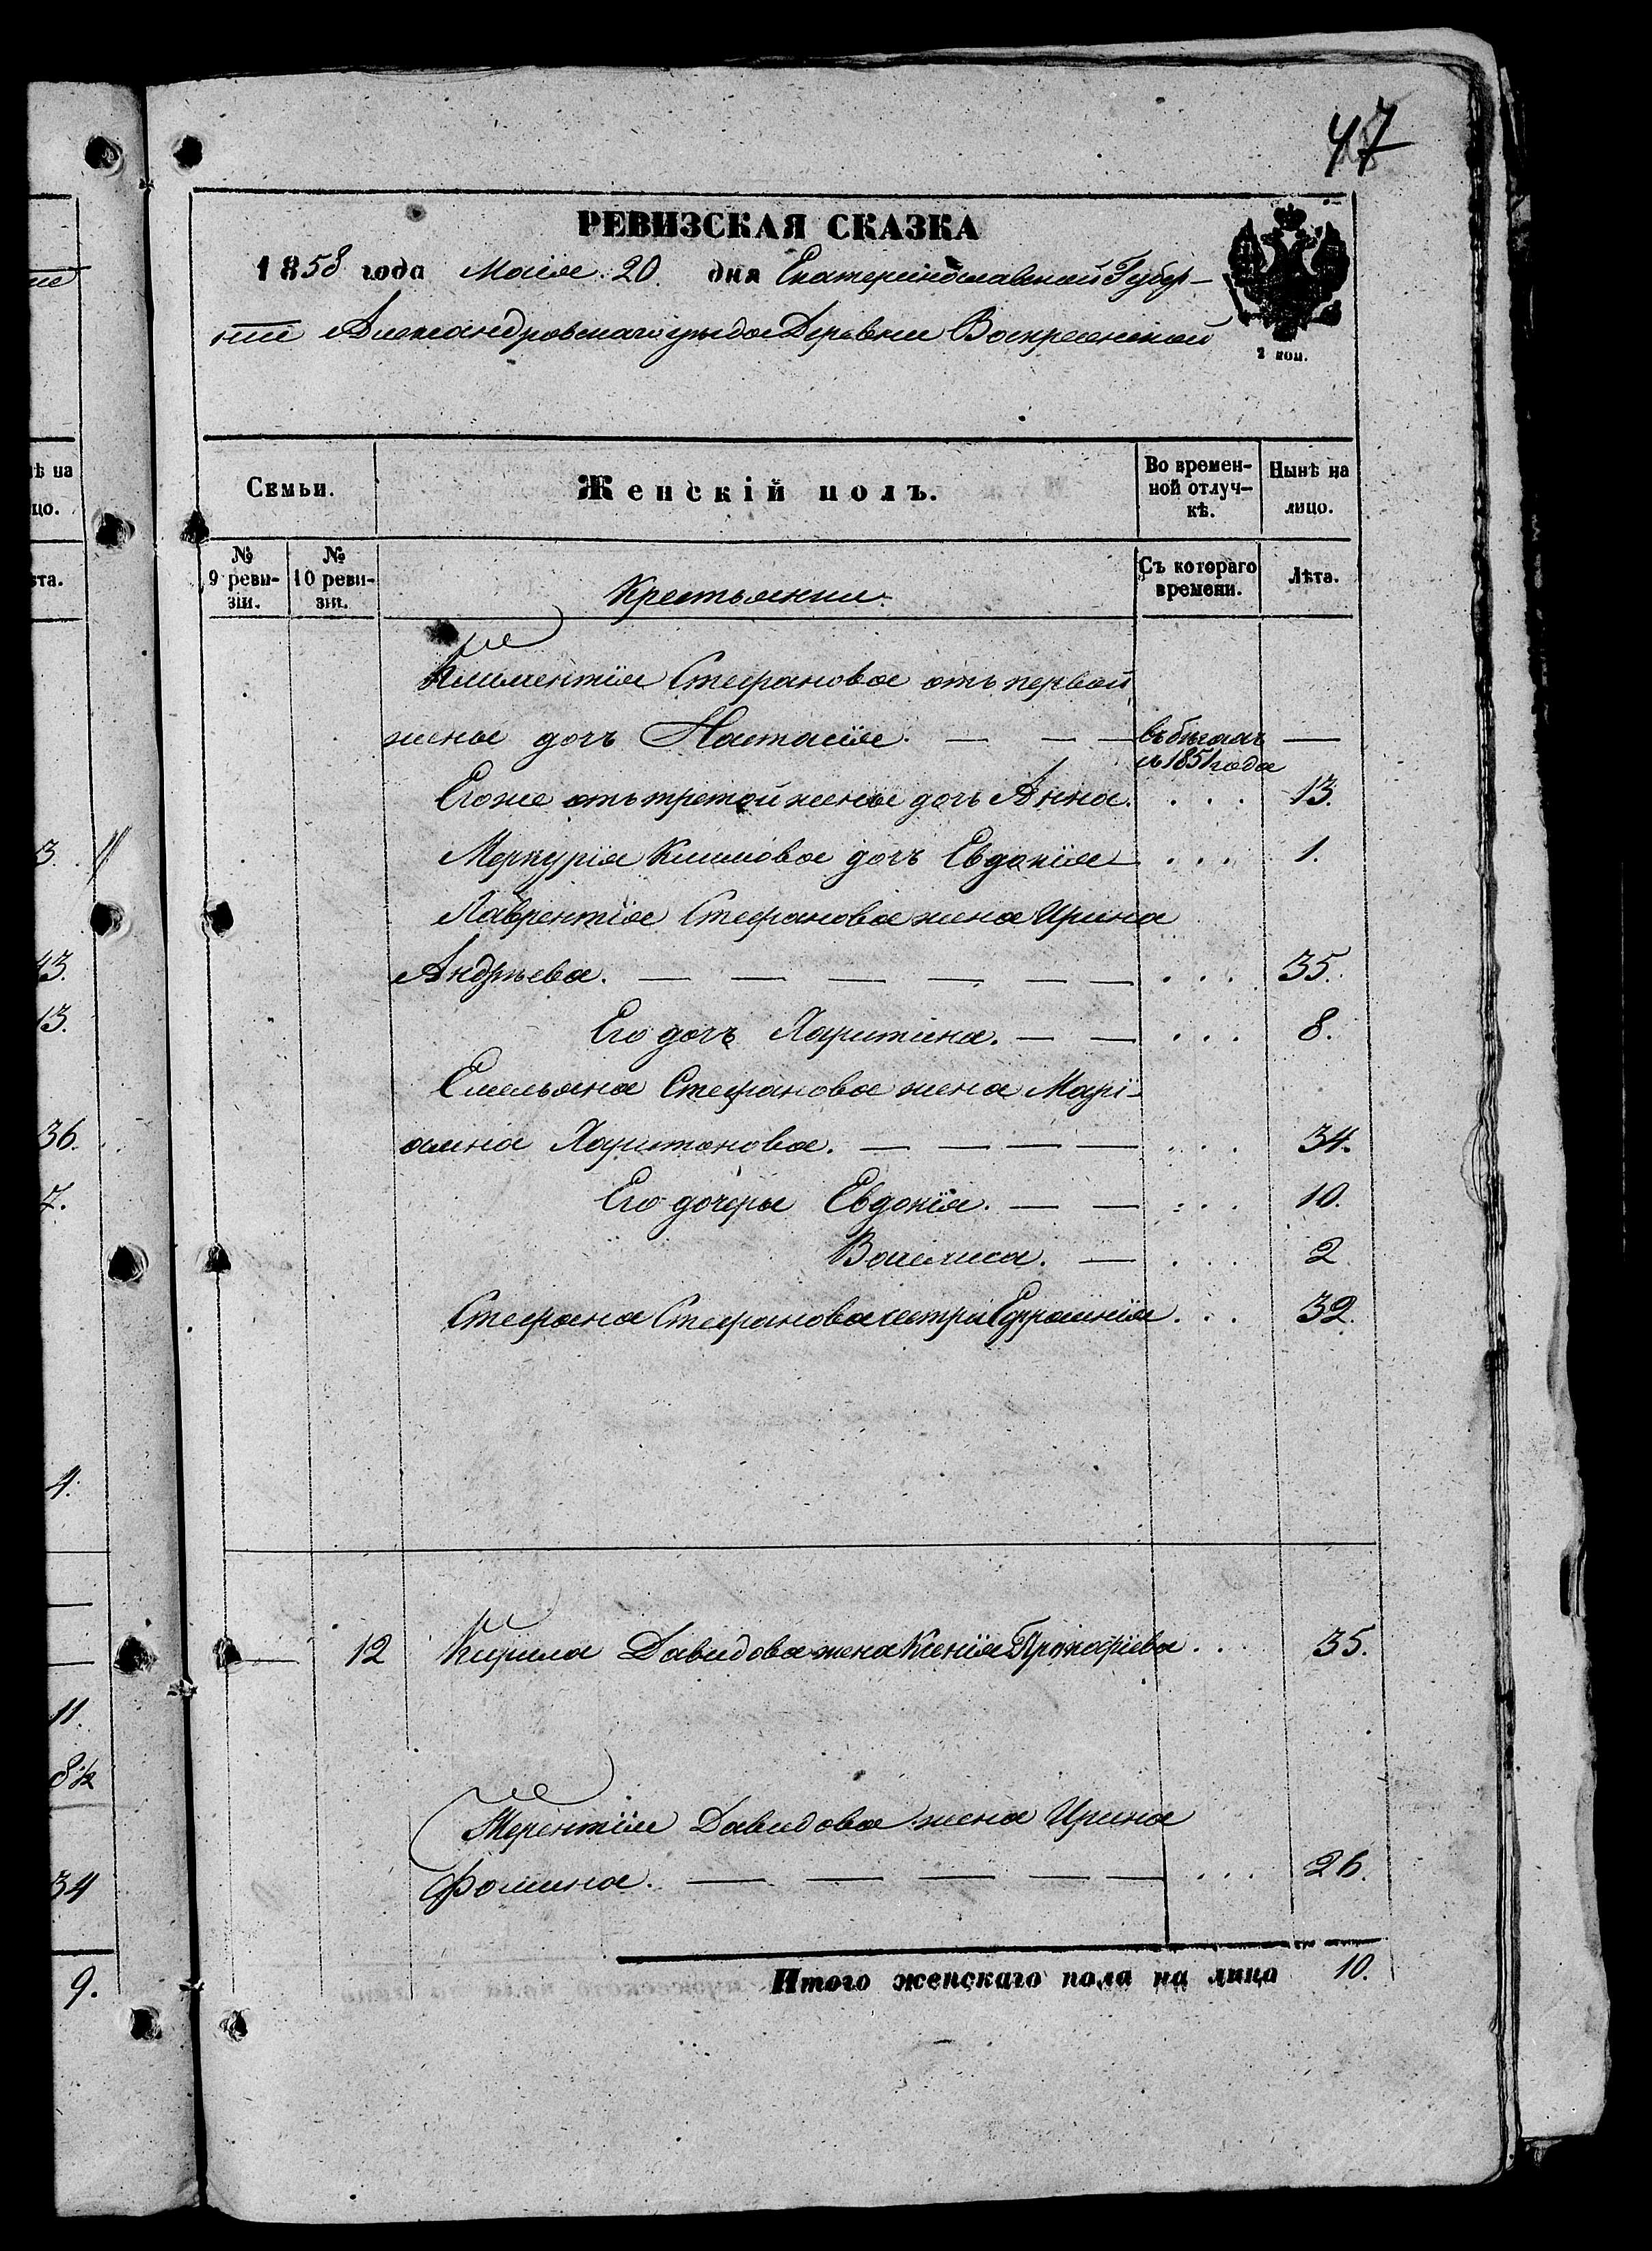 47
РЕВИЗСКАЯ СКАЗКА
1858 года Маія 20. дня Екатеринославской Губер-
ніи Александровскаго уезда Деревни Воскресенской
2 коп.
Семьи.
Женскій полъ.
Во времен-
ной отлуч-
кѣ.
Нынѣ на
лицо.
№
9 реви-
зіи.
№
10 реви-
зіи.
Крестьянки.
Съ котораго
времени.
Лѣта.
Климентія Стефанова отъ первой
жены дочь Настасія. — — — въ бегахъ —
съ 1851 года
Его же отъ третой жены дочь Анна. . . . 13.
Меркурія Климова дочь Евдокія — . . . 1.
Лаврентія Стефанова жена Ирина
Андрѣева. — — — — — — . . . . 35.
Его дочь Харитина. — — . . . 8.
Емельяна Стефанова жена Марі-
амна Харитонова. — — — — . . . 34.
Его дочеры Евдокія. — — . . . 10.
Василиса. — . . . 2.
Стефана Стефанова сестра Ефросинія . . . 32.
— 12 Кирила Давидова жена Ксенія Прокофіева . . . 35.
Терентія Давидова жена Ирина
Фомина. — — — — — — . . . 26.
Итого женскаго пола на лицо 10.
ѣ на
цо.
ѣта.
3.
43.
13.
36.
7.
4.
—
—
11.
8½
34
9.